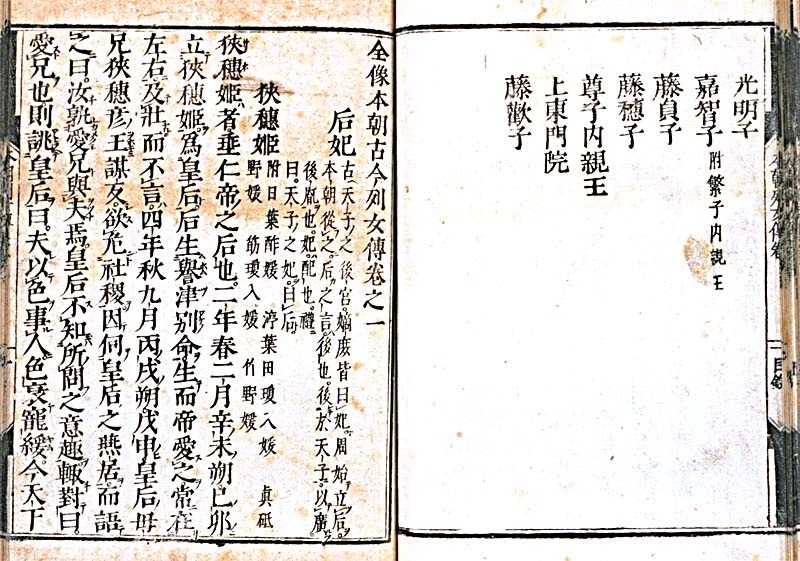 光明子
嘉智子 附繁子内親王
藤貞子
藤穏子
尊子内親王
上東門院
藤歡子
全像本朝古今列女傳卷之一
后妃
古天子之後宮。嫡庶皆曰妃。周始立后。
本朝從之。后之言後也。後於天子。以廣
後胤也。妃配也。禮
曰。天子之妃曰后
狹穗姬
附日葉酢媛 渟葉田瓊入媛 眞砥
野媛 筋瓊入媛 竹野媛
狹穗姬者垂仁帝之后也。二年春二月辛未朔己卯
立狹穗姬爲皇后。后生譽津別命。生而帝愛之常在
左右。及壯而不言。四年秋九月丙戌朔戊申。皇后母
兄狹穗彦王謀反。欲危社稷。因伺皇后之燕居。而語
之曰。汝孰愛兄與夫焉。皇后不知所問之意趣。輙對曰。
愛兄也。則誂皇后曰。夫以色事人。色衰寵緩。今天下
本朝列女傳卷
目錄